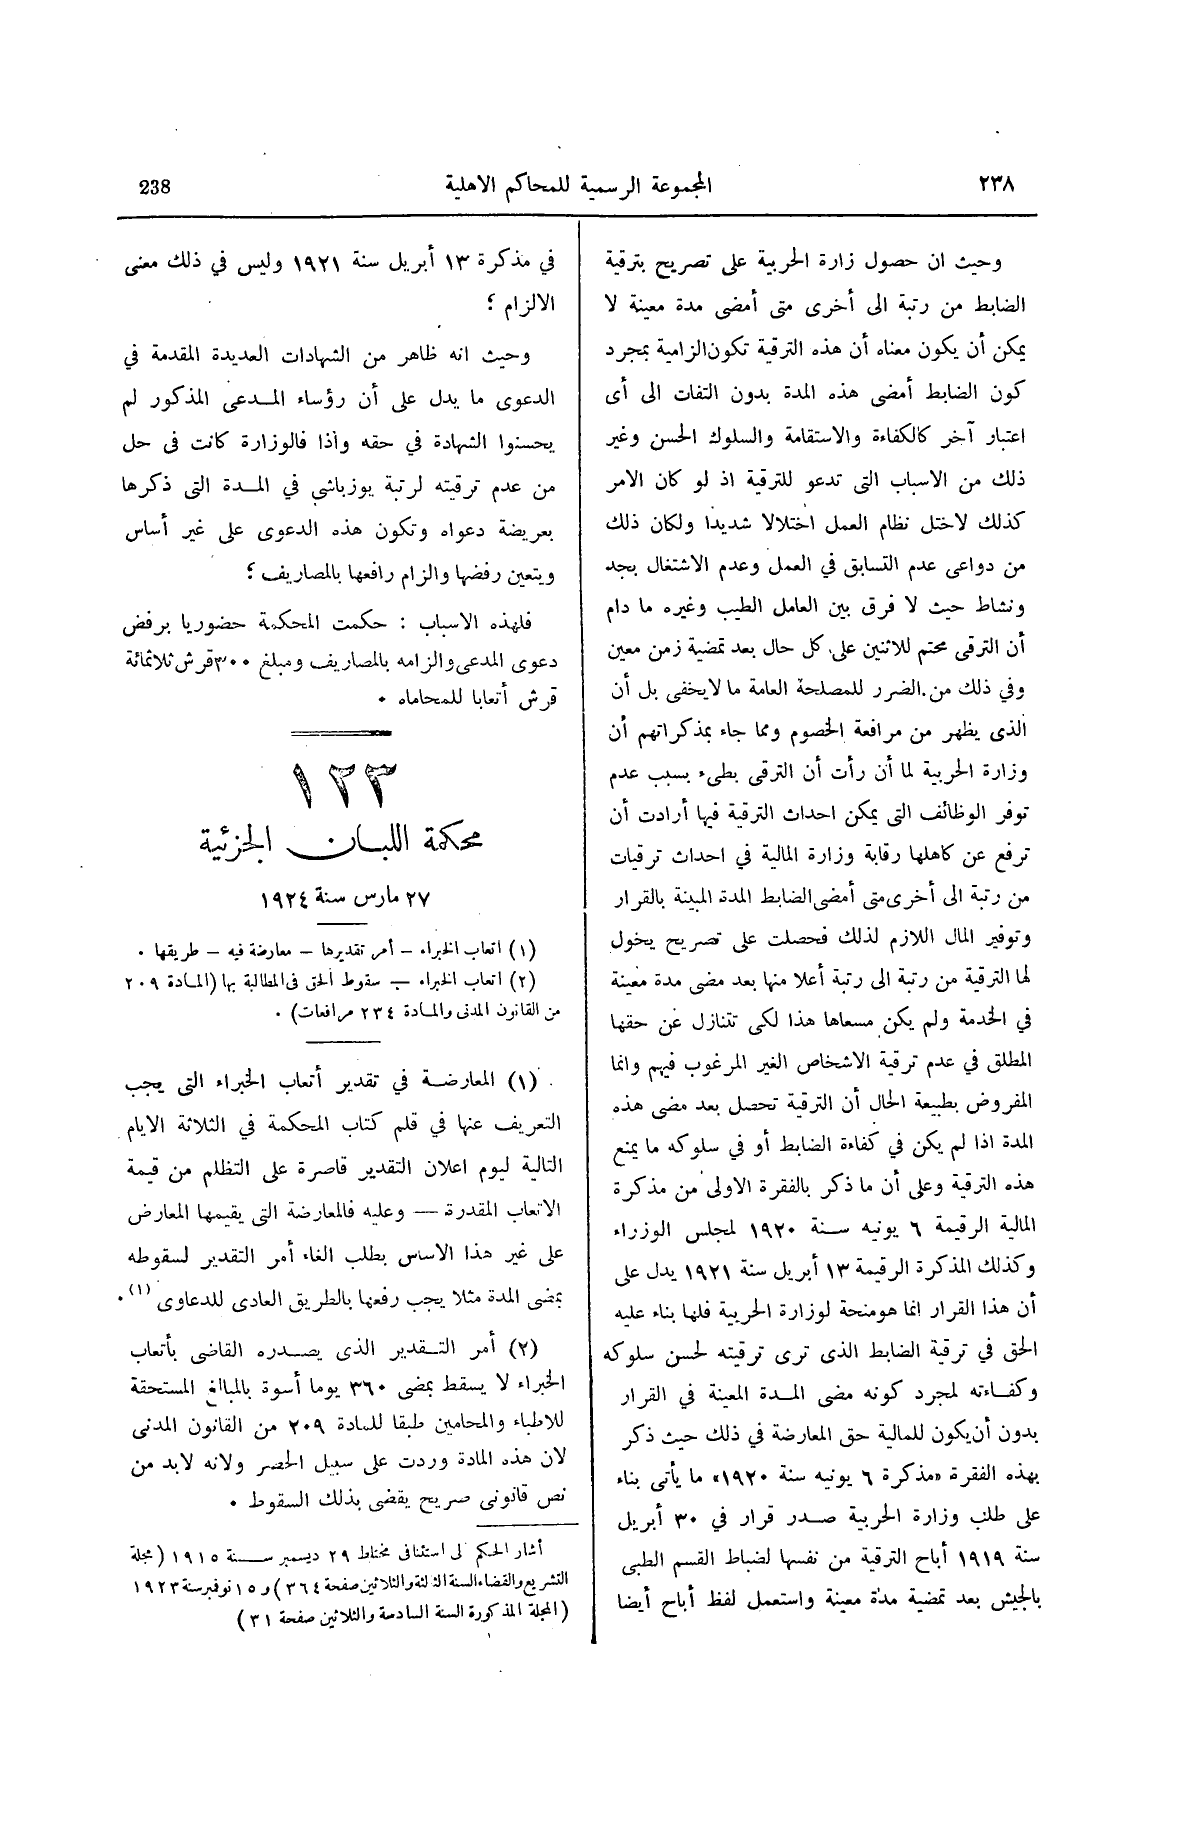 ٢٣٨
المجموعة الرسمية للمحاكم الاهلية
238
وحيث ان حصول زارة الحربية على تصريح بترقية
الضابط من رتبة الى أخرى متى أمضى مدة معينة لا
يمكن أن يكون معناه أن هذه الترقية تكون الزامية بمجرد
كون الضابط أمضى هذه المدة بدون التفات الى أى
اعتبار آخر كالكفاءة والاستقامة والسلوك الحسن وغير
ذلك من الاسباب التى تدعو للترقية اذ لو كان الامر
كذلك لاختل نظام العمل اختلالا شديدا ولكان ذلك
من دواعى عدم التسابق في العمل وعدم الاشتغال بجد
ونشاط حيث لا فرق بين العامل الطيب وغيره ما دام
أن الترقى محتم للاثنين على كل حال بعد تمضية زمن معين
وفي ذلك من الضرر للمصلحة العامة ما لا يخفى بل أن
الذى يظهر من مرافعة الخصوم ومما جاء بمذكراتهم أن
وزارة الحربية لما أن رأت أن الترقى بطىء بسبب عدم
توفر الوظائف التى يمكن احداث الترقية فيها أرادت أن
ترفع عن كاهلها رقابة وزارة المالية في احداث ترقيات
من رتبة الى أخرى متى أمضى الضابط المدة المبينة بالقرار
وتوفير المال اللازم لذلك فحصلت على تصريح يخول
لها الترقية من رتبة الى رتبة أعلا منها بعد مضى مدة معينة
في الخدمة ولم يكن مسعاها هذا لكى تتنازل عن حقها
المطلق في عدم ترقية الاشخاص الغير المرغوب فيهم وانما
المفروض بطبيعة الحال أن الترقية تحصل بعد مضى هذه
المدة اذا لم يكن في كفاءة الضابط أو في سلوكه ما يمنع
هذه الترقية وعلى أن ما ذكر بالفقرة الاولى من مذكرة
المالية الرقيمة ٦ يونيه سنة ١٩٢٠ لمجلس الوزراء
وكذلك المذكرة الرقيمة ١٣ أبريل سنة ١٩٢١ يدل على
أن هذا القرار انما هو منحة لوزارة الحربية فلها بناء عليه
الحق في ترقية الضابط الذى ترى ترقيته لحسن سلوكه
وكفاءته لمجرد كونه مضى المدة المعينة في القرار
بدون أن يكون للمالية حق المعارضة في ذلك حيث ذكر
بهذه الفقرة «مذكرة ٦ يونيه سنة ١٩٢٠» ما يأتى بناء
على طلب وزارة الحربية صدر قرار في ٣٠ أبريل
سنة ١٩١٩ أباح الترقية من نفسها لضباط القسم الطبى
بالجيش بعد تمضية مدة معينة واستعمل لفظ أباح أيضا
في مذكرة ١٣ أبريل سنة ١٩٢١ وليس في ذلك معنى
الالزام ؛
وحيث انه ظاهر من الشهادات العديدة المقدمة في
الدعوى ما يدل على أن رؤساء المدعى المذكور لم
يحسنوا الشهادة في حقه واذا فالوزارة كانت فى حل
من عدم ترقيته لرتبة يوزباشى في المدة التى ذكرها
بعريضة دعواه وتكون هذه الدعوى على غير أساس
ويتعين رفضها والزام رافعها بالمصاريف ؛
فلهذه الاسباب : حكمت المحكمة حضوريا برفض
دعوى المدعى والزامه بالمصاريف ومبلغ ٣٠٠ قرش ثلاثمائة
قرش أتعابا للمحاماه .
١٢٣
محكمة اللبان الجزئية
٢٧ مارس سنة ١٩٢٤
(١) اتعاب الخبراء – أمر تقديرها – معارضة فيه – طريقها .
(٢) اتعاب الخبراء – سقوط الحق فى المطالبة بها (المادة ٢٠٩
من القانون المدنى والمادة ٢٣٤ مرافعات) .
(١) المعارضة في تقدير أتعاب الخبراء التى يجب
التعريف عنها في قلم كتاب المحكمة في الثلاثة الايام
التالية ليوم اعلان التقدير قاصرة على التظلم من قيمة
الاتعاب المقدرة — وعليه فالمعارضة التى يقيمها المعارض
على غير هذا الاساس بطلب الغاء أمر التقدير لسقوطه
بمضى المدة مثلا يجب رفعها بالطريق العادى للدعاوى (١).
(٢) أمر التقدير الذى يصدره القاضى بأتعاب
الخبراء لا يسقط بمضى ٣٦٠ يوما أسوة بالمبالغ المستحقة
للاطباء والمحامين طبقا للمادة ٢٠٩ من القانون المدنى
لان هذه المادة وردت على سبيل الحصر ولانه لابد من
نص قانونى صريح يقضى بذلك السقوط .
أشار الحكم لى استئنافى مختلط ٢٩ ديسمبر سنة ١٩١٥ (مجلة
التشريع والقضاء السنة الثالثة والثلاثين صفحة ٣٦٤) و١٥ نوفمبر سنة ١٩٢٣
(المجلة المذكورة السنة السادسة والثلاثين صفحة ٣١)